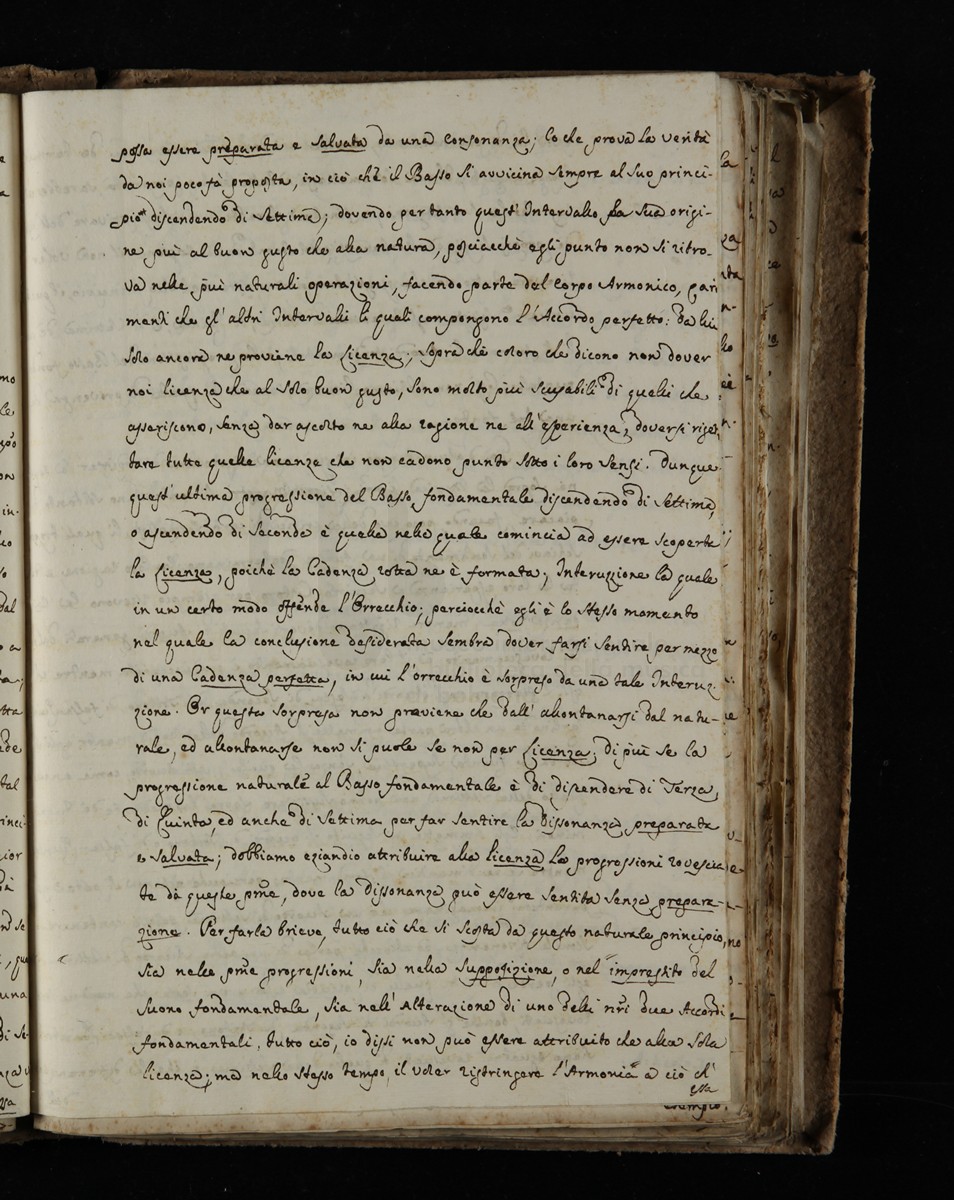 possa essere preparata e salvata da una Consonanza; lo che prova la verità
da noi poco fà proposta, in ciò chè il Basso si avvicina sempre al suo princi-
pio discendendo di Settima; dovendo per tanto quest' Intervallo la sua origi-
ne più al buon gusto che alla natura, posciacchè egli punto non si ritro-
va nelle più naturali operazioni, facendo parte del Corpo Armonico, pari
menti che gl' altri Intervalli li quali compongono l'Accordo perfetto: da lui
solo ancora ne proviene la licenza; sopra chè coloro che dicono non dover
noi licenza che al solo buon gusto, sono molto più scusabili di quelli che
asseriscono, senza dar ascolto ne alla ragione ne all' esperienza, doversi riget
tare tutte quelle licenze che non cadono punto sotto i loro sensi. Dunque
quest' ultima progressione del Basso fondamentale discendendo di Settima,
o ascendendo di Seconda è quella nella quale comincia ad essere scoperta
la licenza, poichè la Cadenza rotta ne è formata; Interuzzione la quale
in un certo modo offende l'Orrecchio; perciocchè egli è lo stesso momento
nel quale la conclusione desiderata sembra dover farsi sentire per mezzo
di una Cadenza perfetta, in cui l'orrecchio è sorpreso da una tale Interuz-
zione. Or questa sorpresa non proviene che dall' allontanarsi dal natu-
rale, ed allontanarse non si puole se non per licenza; di più se la
progressione naturale al Basso fondamentale è di discendere di Terza,
di Quinta, ed anche di Settima per far sentire la dissonanza preparata
e salvata; dobbiamo eziandio attribuire alla licenza le progressioni rovescia
te da queste pme, dove la dissonanza può essere sentita senza prepara-
zione. Per farla brieve, tutto ciò che si scosta da questo naturale principio,
sia nelle pme progressioni, sia nella supposizione, o nel imprestito del
suono fondamentale, sia nell' Alterazione di uno delli nri due Accordi
fondamentali, tutto ciò, io dissi non può essere attribuito che alla sola
licenza; ma nello stesso tempo, il voler ristringere l'Armonia a ciò ch'
essa